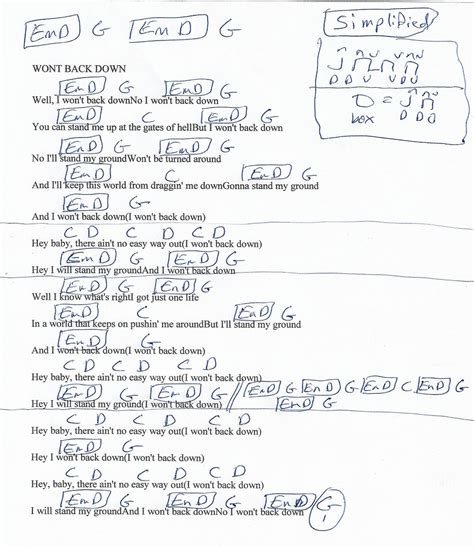 Em D G Em D G
Simplified
D D U U D U
D = 
box D D U
WONT BACK DOWN
Em D G Em D G
Well, I won't back downNo I won't back down
Em D C Em D G
You can stand me up at the gates of hellBut I won't back down
Em D G Em D G
No I'll stand my groundWon't be turned around
Em D C Em D G
And I'll keep this world from draggin' me downGonna stand my ground
Em D G
And I won't back down(I won't back down)
C D C D
Hey baby, there ain't no easy way out(I won't back down)
Em D G Em D G
Hey I will stand my groundAnd I won't back down
Em D G Em D G
Well I know what's rightI got just one life
Em D C Em D G
In a world that keeps on pushin' me aroundBut I'll stand my ground
Em D G
And I won't back down(I won't back down)
C D C D
Hey baby, there ain't no easy way out(I won't back down)
Em D G Em D G // Em D G Em D G Em D C Em D G
Hey I will stand my ground(I won't back down)
Em D G
Hey baby, there ain't no easy way out(I won't back down)
Em D G
Hey I won't back down(I won't back down)
C D C D
Hey, baby, there ain't no easy way out(I won't back down)
Em D G Em D G Em D G
I will stand my groundAnd I won't back downNo I won't back down